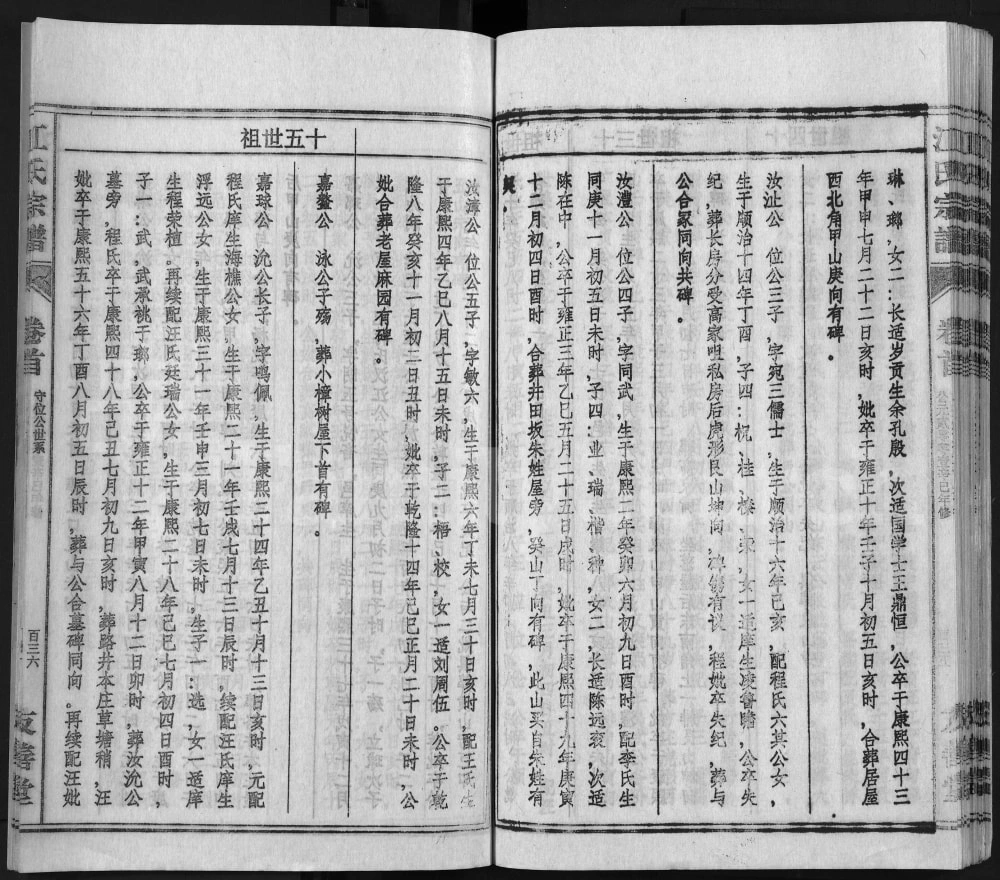 琳、瑯，女二：长适岁贡生余孔殷，次适国学士王鼎恒，公卒于康熙四十三
年甲申七月二十二日亥时，妣卒于雍正十年壬子十月初五日亥时，合葬居屋
西北角甲山庚向有碑。
汝沚公　位公三子，字宛三儒士，生于顺治十六年己亥，配程氏六其公女，
生于顺治十四年丁酉，子四：柷、桂、楘、宋，女一适庠生凌鲁瞻，公卒失
纪，葬长房分受高家咀私房后虎形艮山坤向，碑傍有议，程妣卒失纪，葬与
公合冢同向共碑。
汝澧公　位公四子，字同武，生于康熙二年癸卯六月初九日酉时，配李氏生
同庚十一月初五日未时，子四：业、瑞、楷、种，女二，长适陈远衮，次适
陈在中，公卒于雍正三年乙巳五月二十五日戌时，妣卒于康熙四十九年庚寅
十二月初四日酉时，合葬井田坂朱姓屋旁，癸山丁向有碑，此山买自朱姓有
契。
十五世祖
汝漳公　位公五子，字敏六，生于康熙六年丁未七月三十日亥时，配王氏生
于康熙四年乙巳八月十五日未时，子二：梧、校，女一适刘周伍。公卒于乾
隆八年癸亥十一月初二日丑时，妣卒于乾隆十四年己巳正月二十日未时，公
妣合葬老屋麻园有碑。
嘉鳌公　泳公子殇，葬小樟树屋下首有碑。
嘉球公　沇公长子，字鸣佩，生于康熙二十四年乙丑十月十三日亥时，元配
程氏庠生海樵公女，生于康熙二十一年壬戌七月十三日辰时，续配汪氏庠生
浮远公女，生于康熙三十一年壬申三月初七日未时，生子一：选，女一适庠
生程荣檀。再续配汪氏廷瑞公女，生于康熙二十八年己巳七月初四日酉时，
子一：武，武承祧于瑯，公卒于雍正十二年甲寅八月十二日卯时，葬汝沇公
墓旁，程氏卒于康熙四十八年己丑七月初九日亥时，葬路井本庄草塘稍，汪
妣卒于康熙五十六年丁酉八月初五日辰时，葬与公合墓碑同向。再续配汪妣
江氏宗谱
卷首
守位公世系
百三六
友善堂